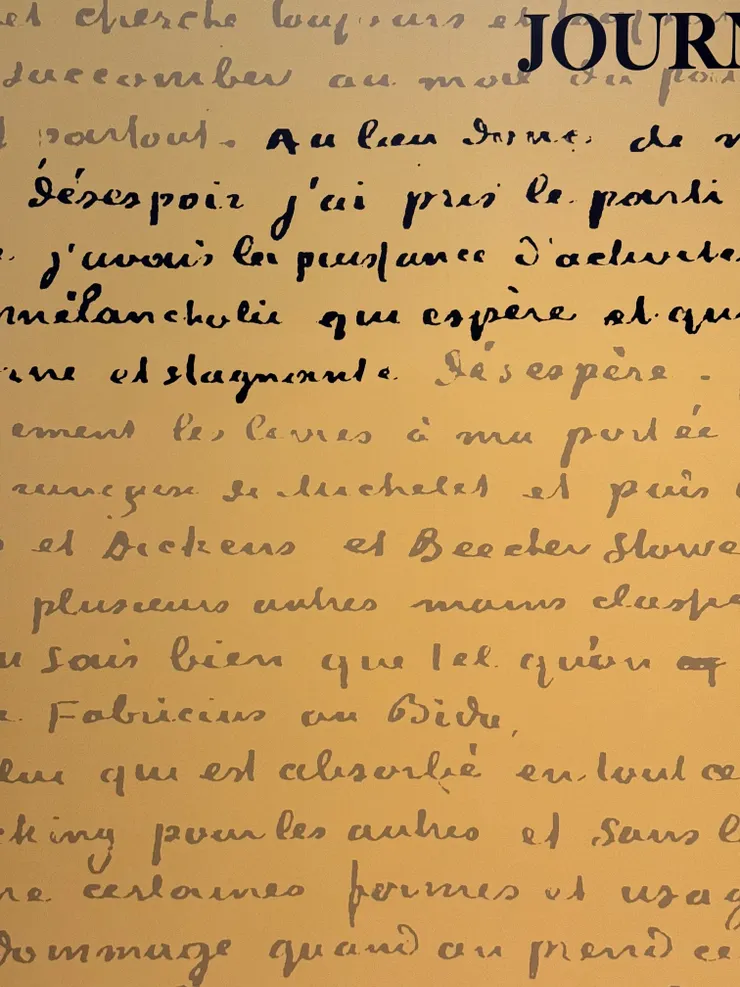 JOURN
et cherche toujours et
succomber au mal du
partout. Au lieu donc de
désespoir j'ai pris le parti
j'avais la puissance d'activité
mélancholie qui espère et qu
rne et stagnante désespère.
ement les livres à ma portée
française de Michelet et puis
et Dickens et Beecher Stowe
plusieurs autres moins classe
u sais bien que tel qu'on
Fabricius ou Bida,
lui qui est absorbé en tout ce
cking pour les autres et sans
certaines formes et usag
dommage quand on prend ce